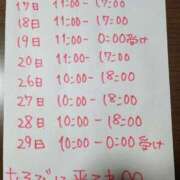 17日 11:00-17:00
18日 11:00-17:00
19日 11:00-0:00受け
20日 11:00-17:00
26日 10:00-18:00
27日 10:00-18:00
28日 10:00-18:00
29日 10:00-0:00受け